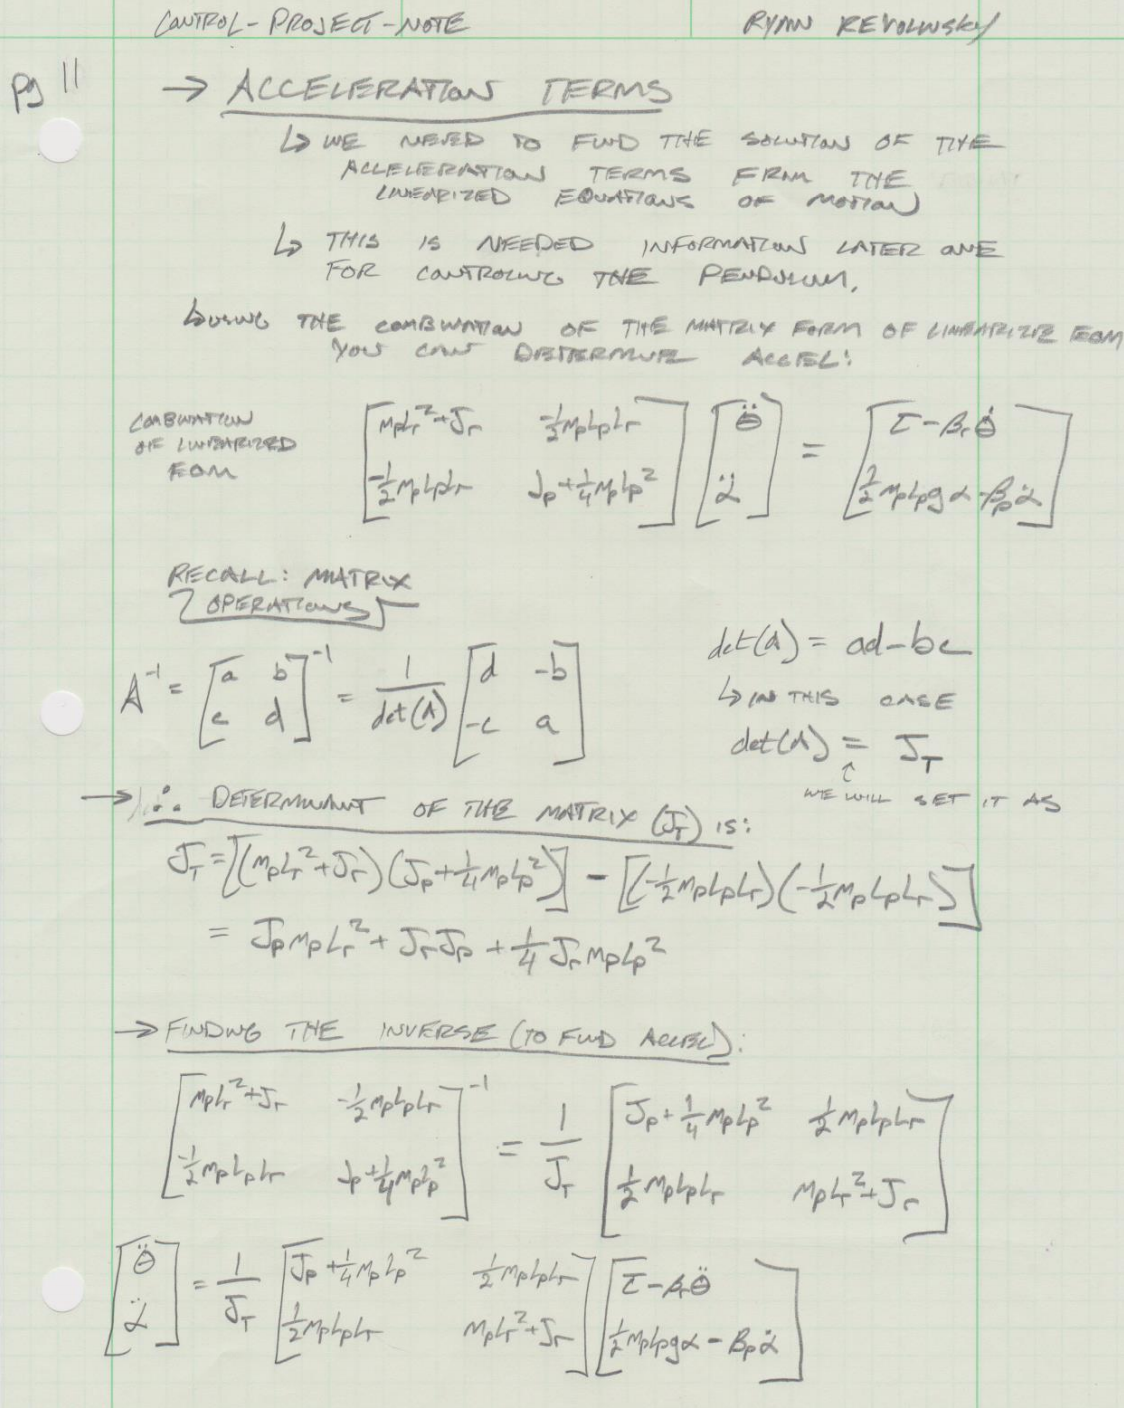 CONTROL-PROJECT-NOTE RYAN REVOLINSKY
pg 11
→ ACCELERATION TERMS
↳ WE NEED TO FIND THE SOLUTION OF THE
ACCELERATION TERMS FROM THE
LINEARIZED EQUATIONS OF MOTION
↳ THIS IS NEEDED INFORMATION LATER ONE
FOR CONTROLING THE PENDULUM.
↳ USING THE COMBINATION OF THE MATRIX FORM OF LINEARIZE EOM
YOU CAN DETERMINE ACCEL:
COMBINATION
OF LINEARIZED
EOM
[MpLr²+Jr -½MpLpLr] [θ̈] = [τ-βrθ̇]
[-½MpLpLr Jp+¼MpLp²] [α̈] [½MpLpgα-βpα̇]
RECALL: MATRIX
OPERATIONS
A⁻¹ = [a b; c d]⁻¹ = 1/det(A) [d -b; -c a]
det(A) = ad-bc
↳ IN THIS CASE
det(A) = JT
↑
WE WILL SET IT AS
→ ∴ DETERMINANT OF THE MATRIX (JT) IS:
JT = [(MpLr²+Jr)(Jp+¼MpLp²)] - [(-½MpLpLr)(-½MpLpLr)]
= JpMpLr² + JrJp + ¼JrMpLp²
→ FINDING THE INVERSE (TO FIND ACCEL):
[MpLr²+Jr -½MpLpLr; -½MpLpLr Jp+¼MpLp²]⁻¹ = 1/JT [Jp+¼MpLp² ½MpLpLr; ½MpLpLr MpLr²+Jr]
[θ̈; α̈] = 1/JT [Jp+¼MpLp² ½MpLpLr; ½MpLpLr MpLr²+Jr] [τ-βrθ̈; ½MpLpgα-βpα̇]